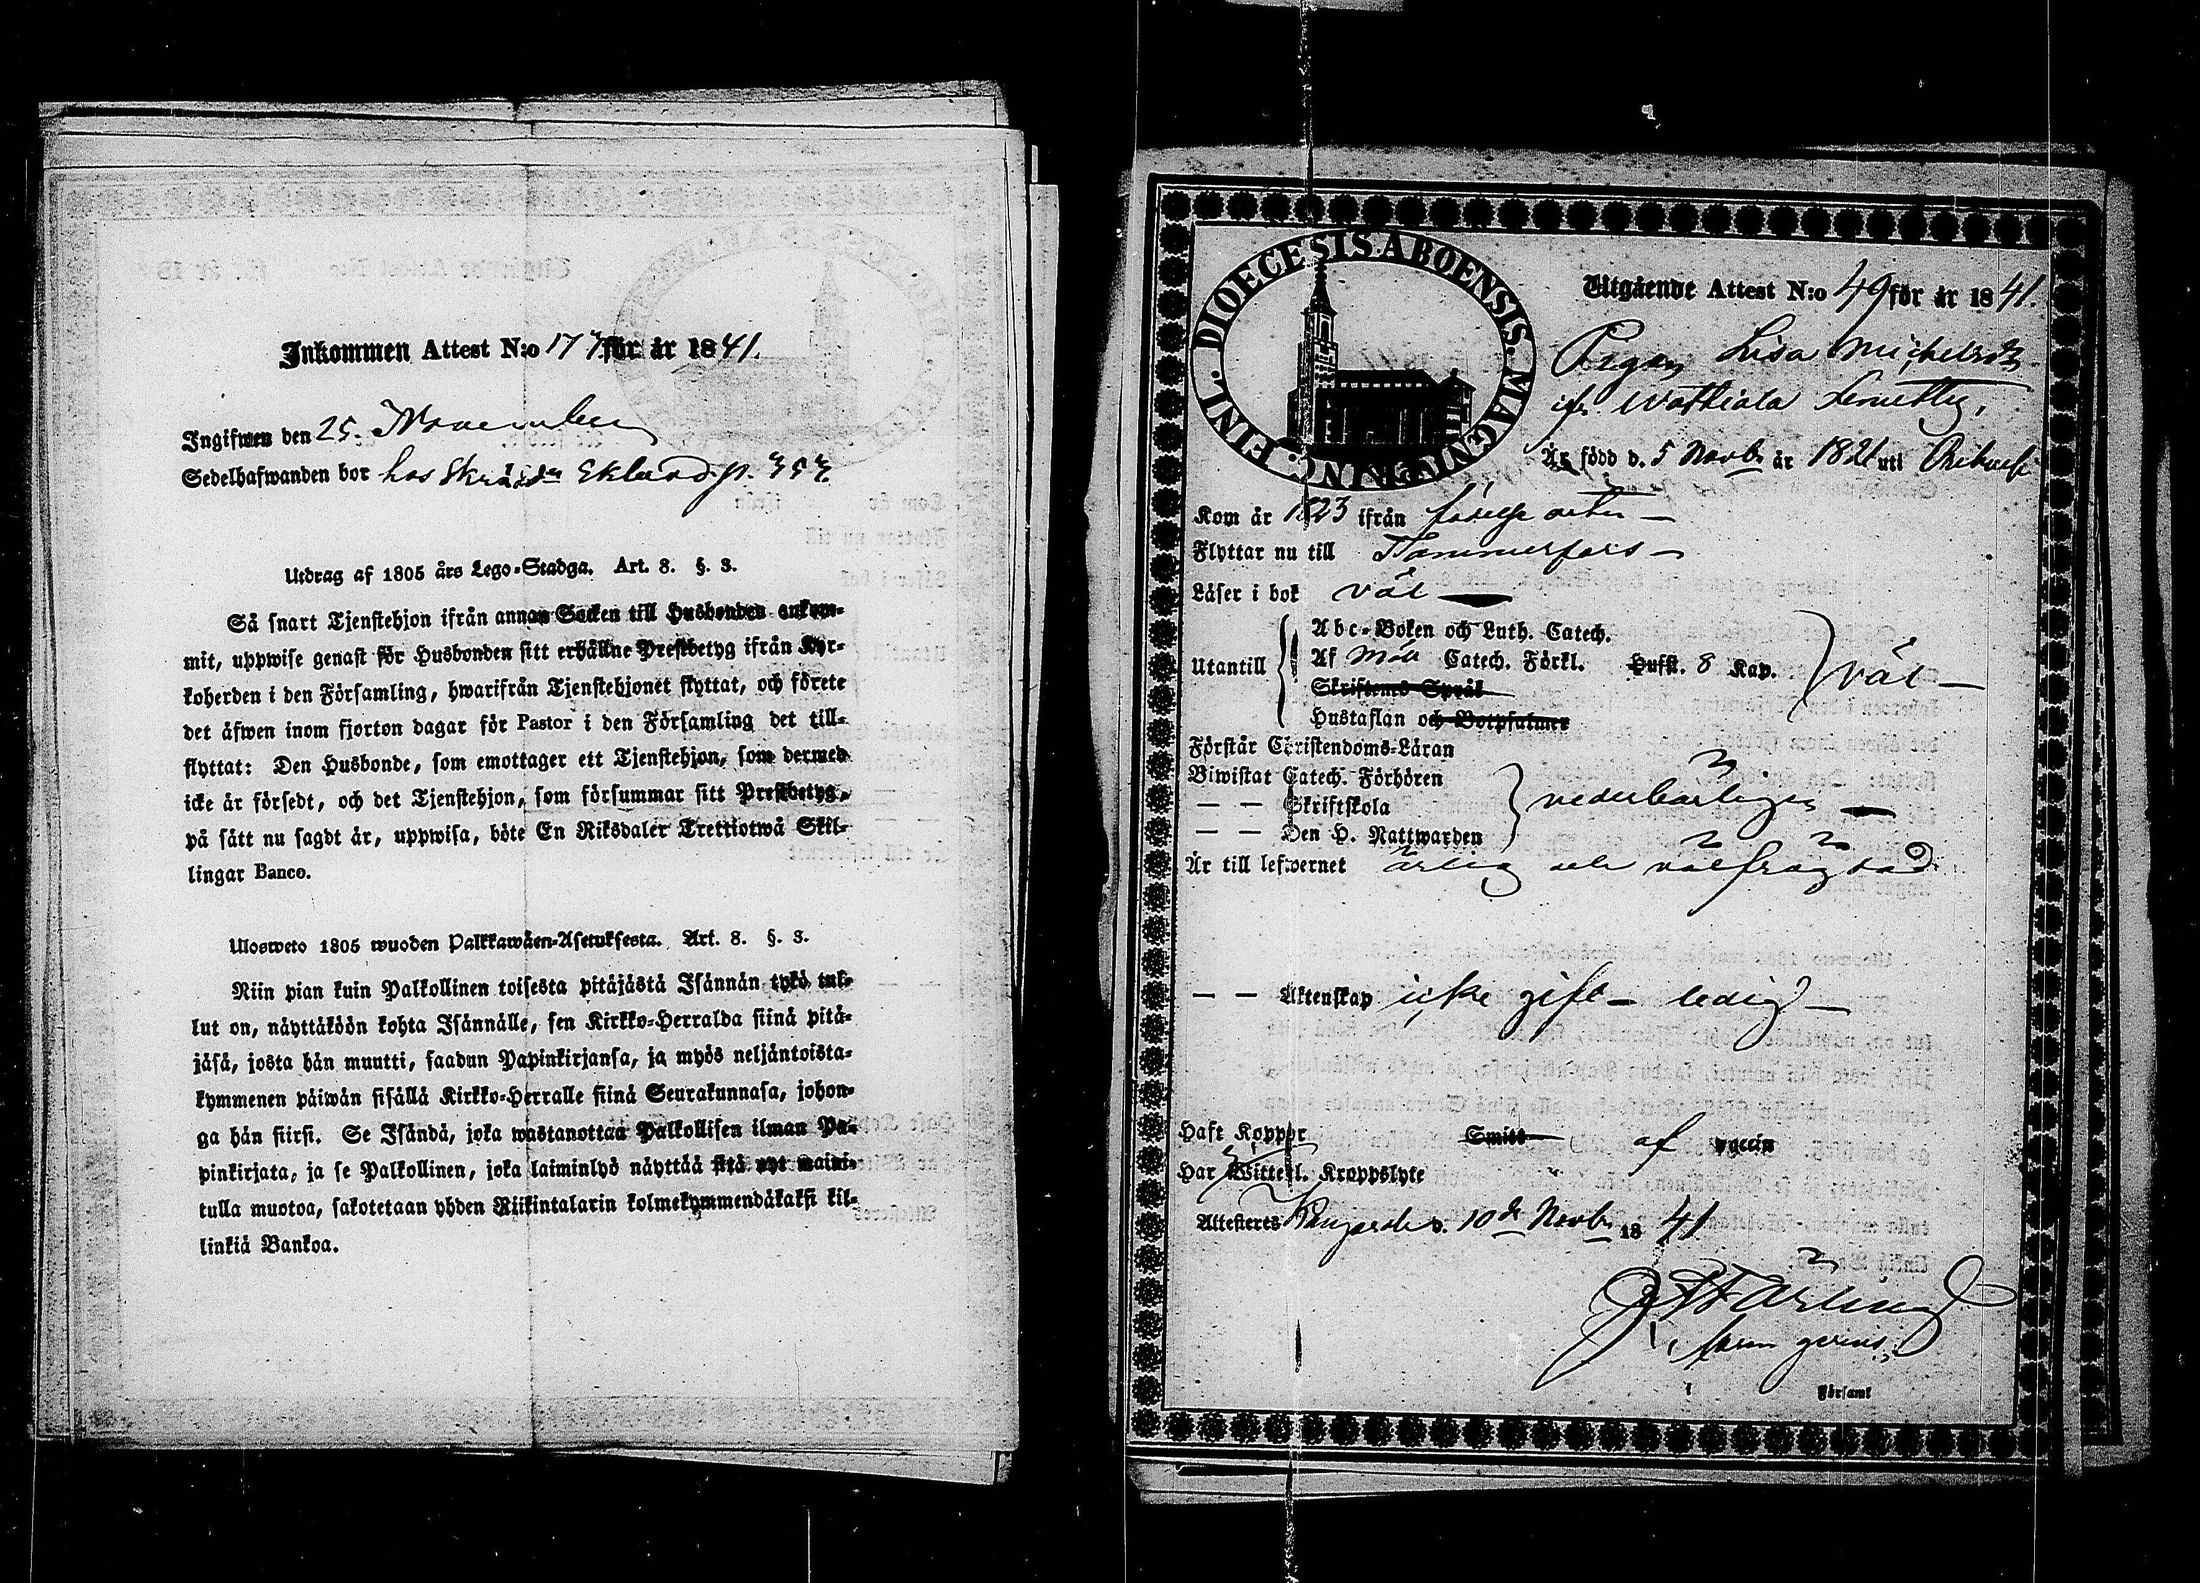 Inkommen Attest N:o 177 för år 1841.
Ingifwen den 25. November
Sedelhafwanden bor hos Eklund p. 353.
Utdrag af 1805 års Lego-Stadga. Art. 8. §. 3.
Så snart Tjenstehjon ifrån annan Socken till Husbonden ankom-
mit, uppwise genast för Husbonden sitt erhållne Prestbetyg ifrån Kyr-
koherden i den Församling, hwarifrån Tjenstehjonet flyttat, och förete
det äfwen inom fjorton dagar för Pastor i den Församling det till-
flyttat: Den Husbonde, som emottager ett Tjenstehjon, som dermed
icke är försedt, och det Tjenstehjon, som försummar sitt Prestbetyg,
på sätt nu sagdt är, uppwisa, böte En Riksdaler Trettiotwå Skil-
lingar Banco.
Ulosweto 1805 wuoden Palkkawäen-Asetuksesta. Art. 8. §. 3.
Niin pian kuin Palkollinen toisesta pitäjästä Isännän tykö tul-
lut on, näyttäköön kohta Isännälle, sen Kirkko-Herralda siinä pitä-
jäsä, josta hän muutti, saadun Papinkirjansa, ja myös neljäntoista-
kymmenen päiwän sisällä Kirkko-Herralle siinä Seurakunnasa, johon-
ga hän siirsi. Se Isändä, joka wastanottaa Palkollisen ilman Pa-
pinkirjata, ja se Palkollinen, joka laiminlyö näyttää sitä nyt maini-
tulla muotoa, sakotetaan yhden Riikintalarin kolmekymmendäkaksi kil-
linkiä Bankoa.
DIOECESIS ABOENSIS. MAGNI PRINC. FINL.
Utgående Attest N:o 49 för år 1841.
Pigan Lisa Michelsdr
ifr Wattiala
Är född d. 5 Novbr år 1821 uti
Kom år 1823 ifrån födelse orten
Flyttar nu till Tammerfors
Läser i bok väl
Utantill
Abc-Boken och Luth. Catech.
Af Möll Catech. Förkl. Hufst. 8 Kap.
Skriftens Språk
Hustaflan och Botpsalmer
väl
Förstår Christendoms-Läran
Biwistat Catech. Förhören
— — Skriftskola
— — Den H. Nattwarden
vederbörligen
Är till lefwernet ärlig och välfrägdad
— — Äktenskap icke gift – ledig
Haft Koppor Smitt af vaccin
Har Witterl. Kroppslyte
Attesteras Kangasala d. 10de Novbr 1841
i Församl